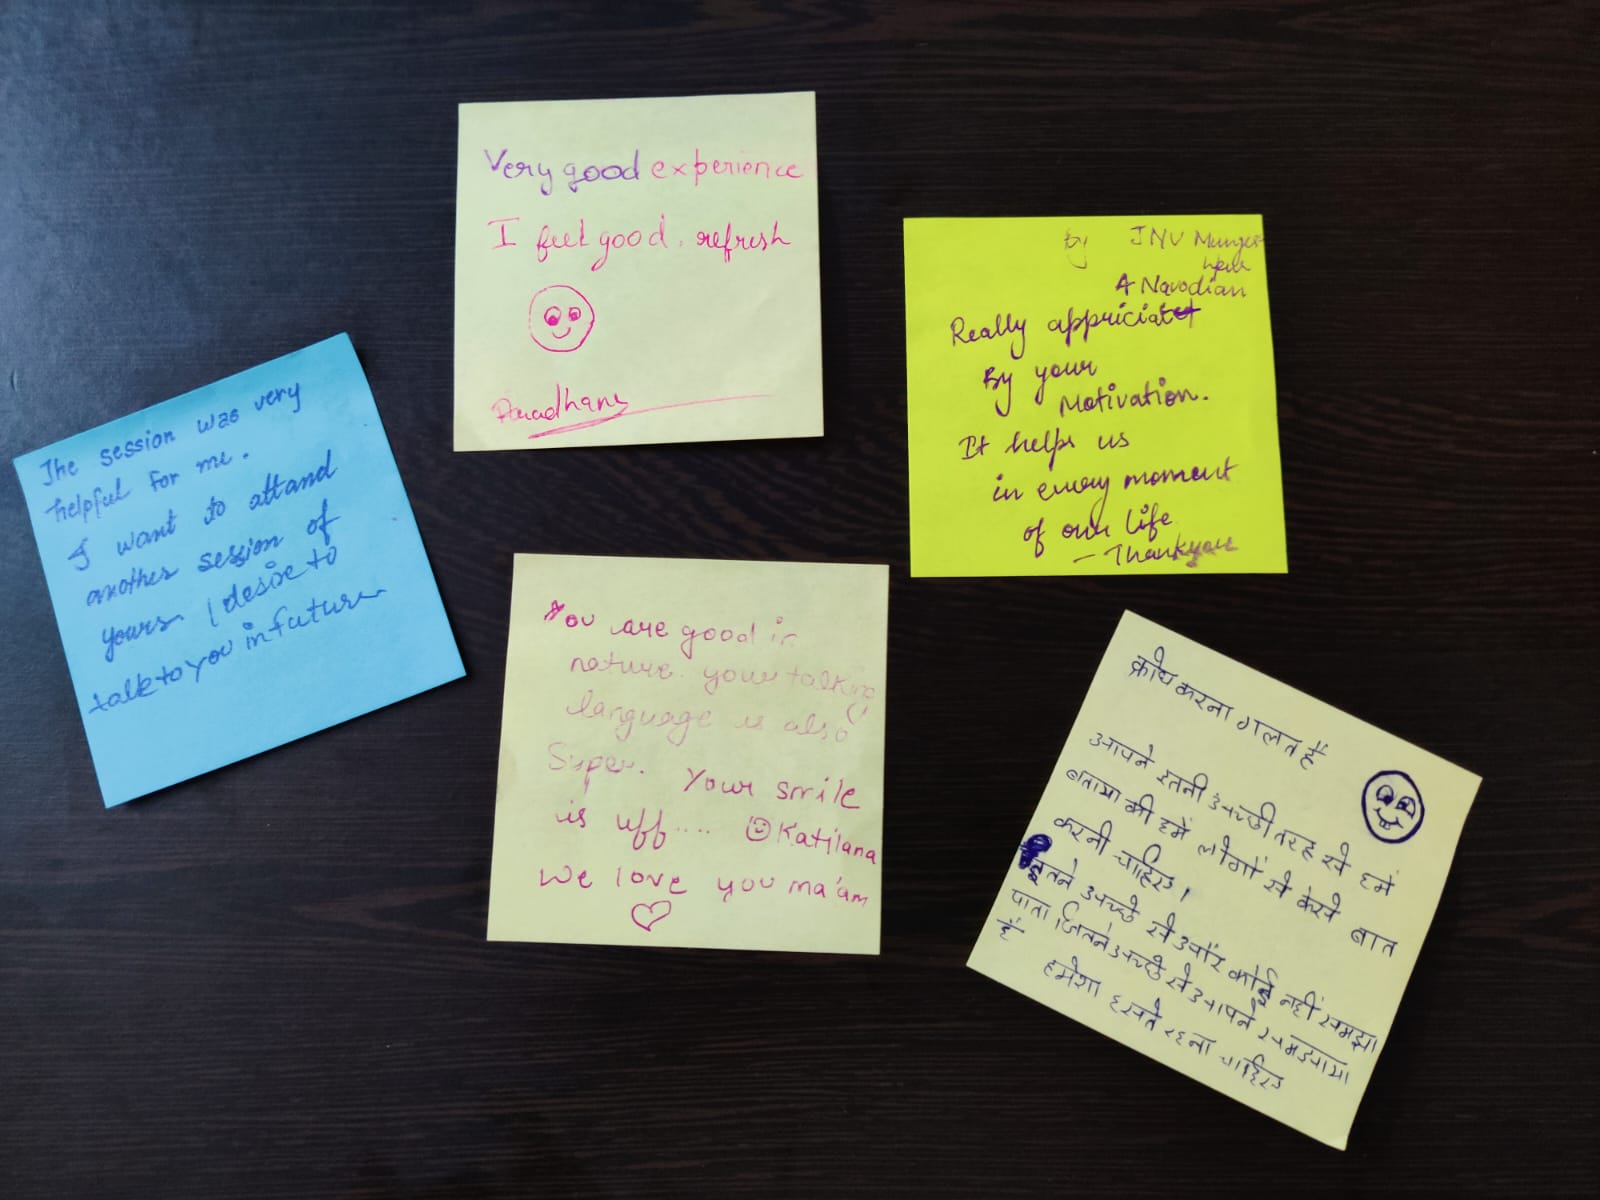 Very good experience
I feel good, refresh
by JNV Munger
A Navodian
Really appriciat
By your
Motivation.
It helps us
in every moment
of our life
- Thankyou
The session was very
helpful for me.
I want to attand
another session of
yours. I desire to
talk to you in future
You are good in
nature. your talking
language is also
Super. Your smile
is uff.... Katilana
We love you ma'am
क्रोध करना गलत है
आपने इतनी अच्छी तरह से हमें
बताया की हमें लोगों से कैसे बात
करनी चाहिए।
इतने अच्छे से और कोई नहीं समझा
पाता जितने अच्छे से आपने समझाया
है
हमेशा हसते रहना चाहिए